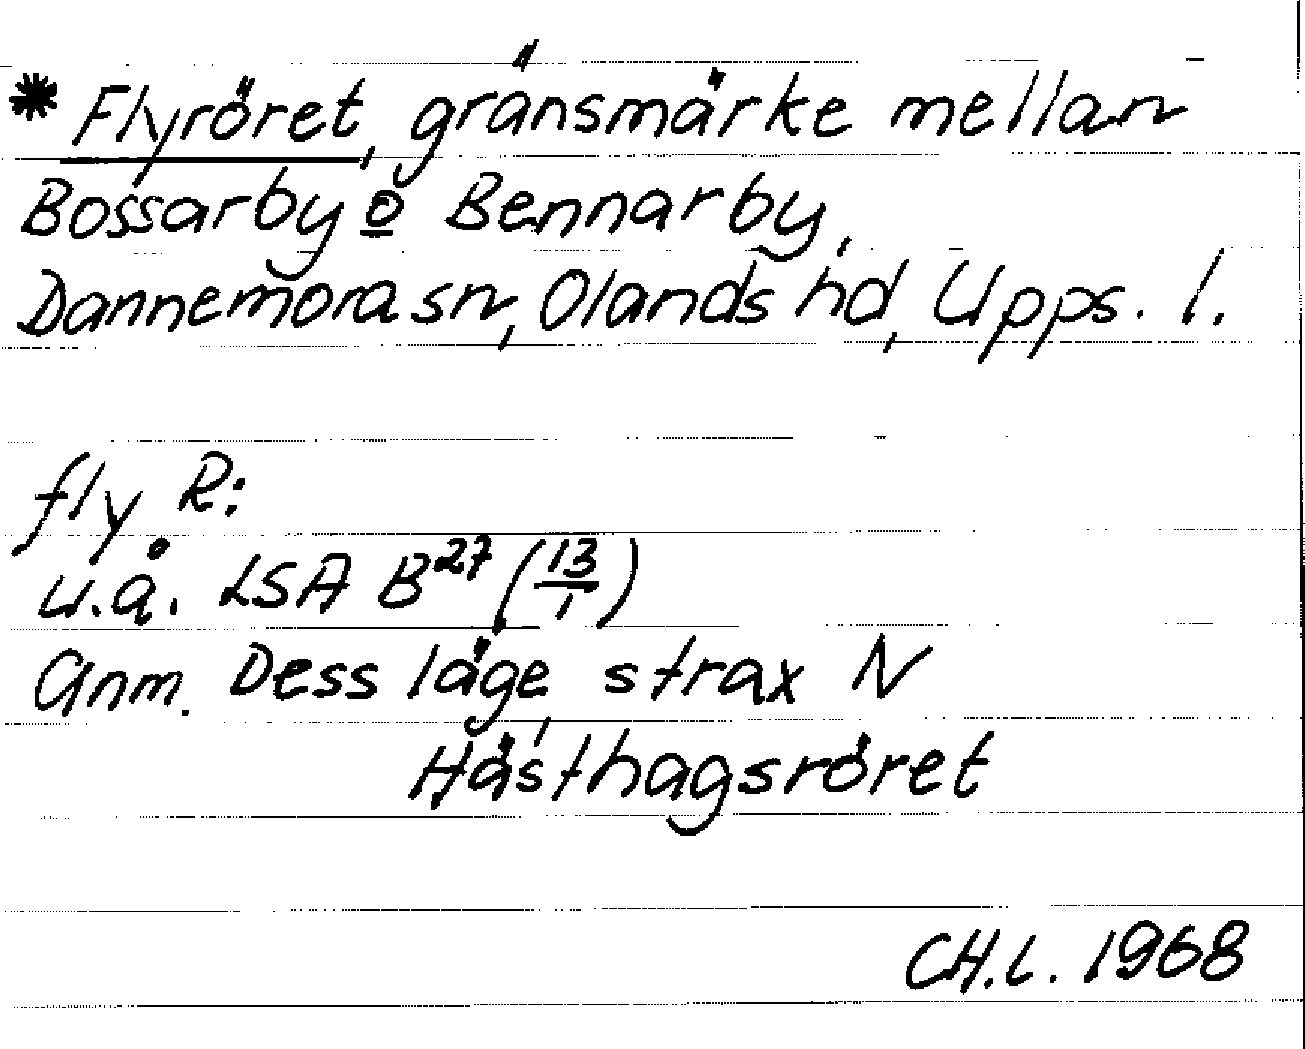 * Flyröret, gränsmärke mellan
Bossarby o Bennarby,
Dannemora sn, Olands hd, Upps. l.
fly R:
u.å. LSA B27 (13/1)
Anm. Dess läge, strax N
Hästhagsröret
CH.L. 1968